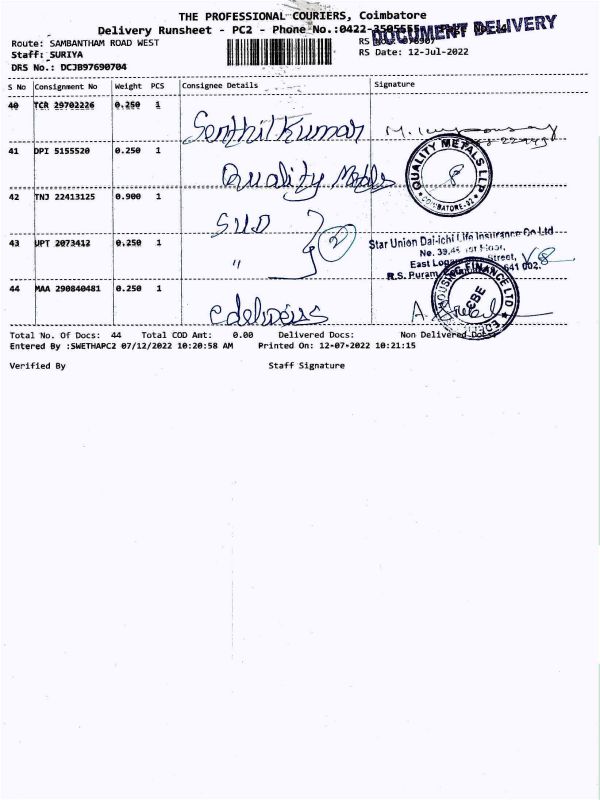 THE PROFESSIONAL COURIERS, Coimbatore
Delivery Runsheet - PC2 - Phone No.:0422-2505555
DOCUMENT DELIVERY
Route: SAMBANTHAM ROAD WEST
RS No.:
Staff: SURIYA
RS Date: 12-Jul-2022
DRS No.: DCJB97690704
S No Consignment No Weight PCS Consignee Details Signature
40 TCR 29702226 0.250 1
Senthil Kumar
41 DPI 5155520 0.250 1
Quality Metals
QUALITY METALS LLP
COIMBATORE-92
8
42 TNJ 22413125 0.900 1
SUD
2
43 UPT 2073412 0.250 1
"
Star Union Dai-ichi Life Insurance Co Ltd
East Street,
R.S. Puram 641 002.
44 MAA 290840481 0.250 1
edelweiss
HOUSING FINANCE LTD
CBE
Total No. Of Docs: 44 Total COD Amt: 0.00 Delivered Docs: Non Delivered Docs:
Entered By :SWETHAPC2 07/12/2022 10:20:58 AM Printed On: 12-07-2022 10:21:15
Verified By Staff Signature